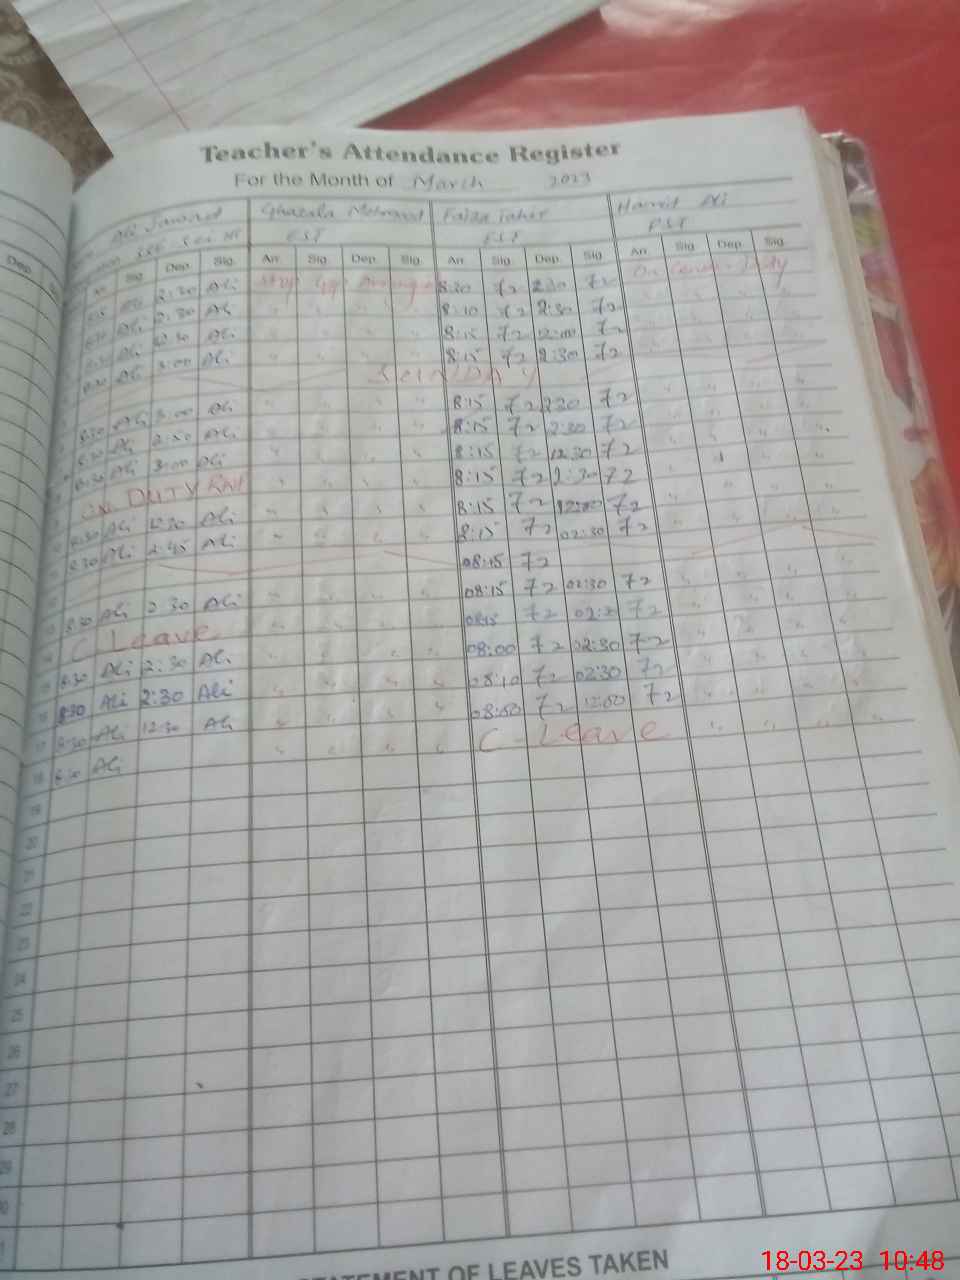 Teacher's Attendance Register
For the Month of March 2023
Ali Ghazala Mehmood Faiza Tahir Hamid Ali
EST EST PST
Dep. Arr. Sig. Dep. Sig. Arr. Sig. Dep. Sig. Arr. Sig. Dep. Sig. Arr. Sig. Dep. Sig.
Ali 2:30 Ali Stop Gap 8:20 72 2:30 72 On Duty
Ali 2:30 Ali 8:10 72 2:30 72
Ali 12:30 Ali 8:15 72 12:00 72
8:30 Ali 3:00 Ali 8:15 72 2:30 72
SUNDAY
8:30 Ali 3:00 Ali 8:15 72 2:30 72
8:30 Ali 2:50 Ali 8:15 72 2:30 72
8:30 Ali 3:00 Ali 8:15 72 12:30 72
ON DUTY 8:15 72 2:30 72
8:30 Ali 12:30 Ali 8:15 72 12:00 72
8:30 Ali 2:45 Ali 8:15 72 02:30 72
08:15 72
13 8:30 Ali 2:30 Ali 08:15 72 02:30 72
14 C Leave 0815 72 72
15 8:30 Ali 2:30 Ali 08:00 72 02:30 72
16 8:30 Ali 2:30 Ali 08:10 72 02:30 72
17 8:30 Ali 12:30 Ali 08:00 72 12:00 72
18 8:30 Ali C-Leave
19
20
21
22
23
24
25
26
27
28
29
STATEMENT OF LEAVES TAKEN
18-03-23 10:48